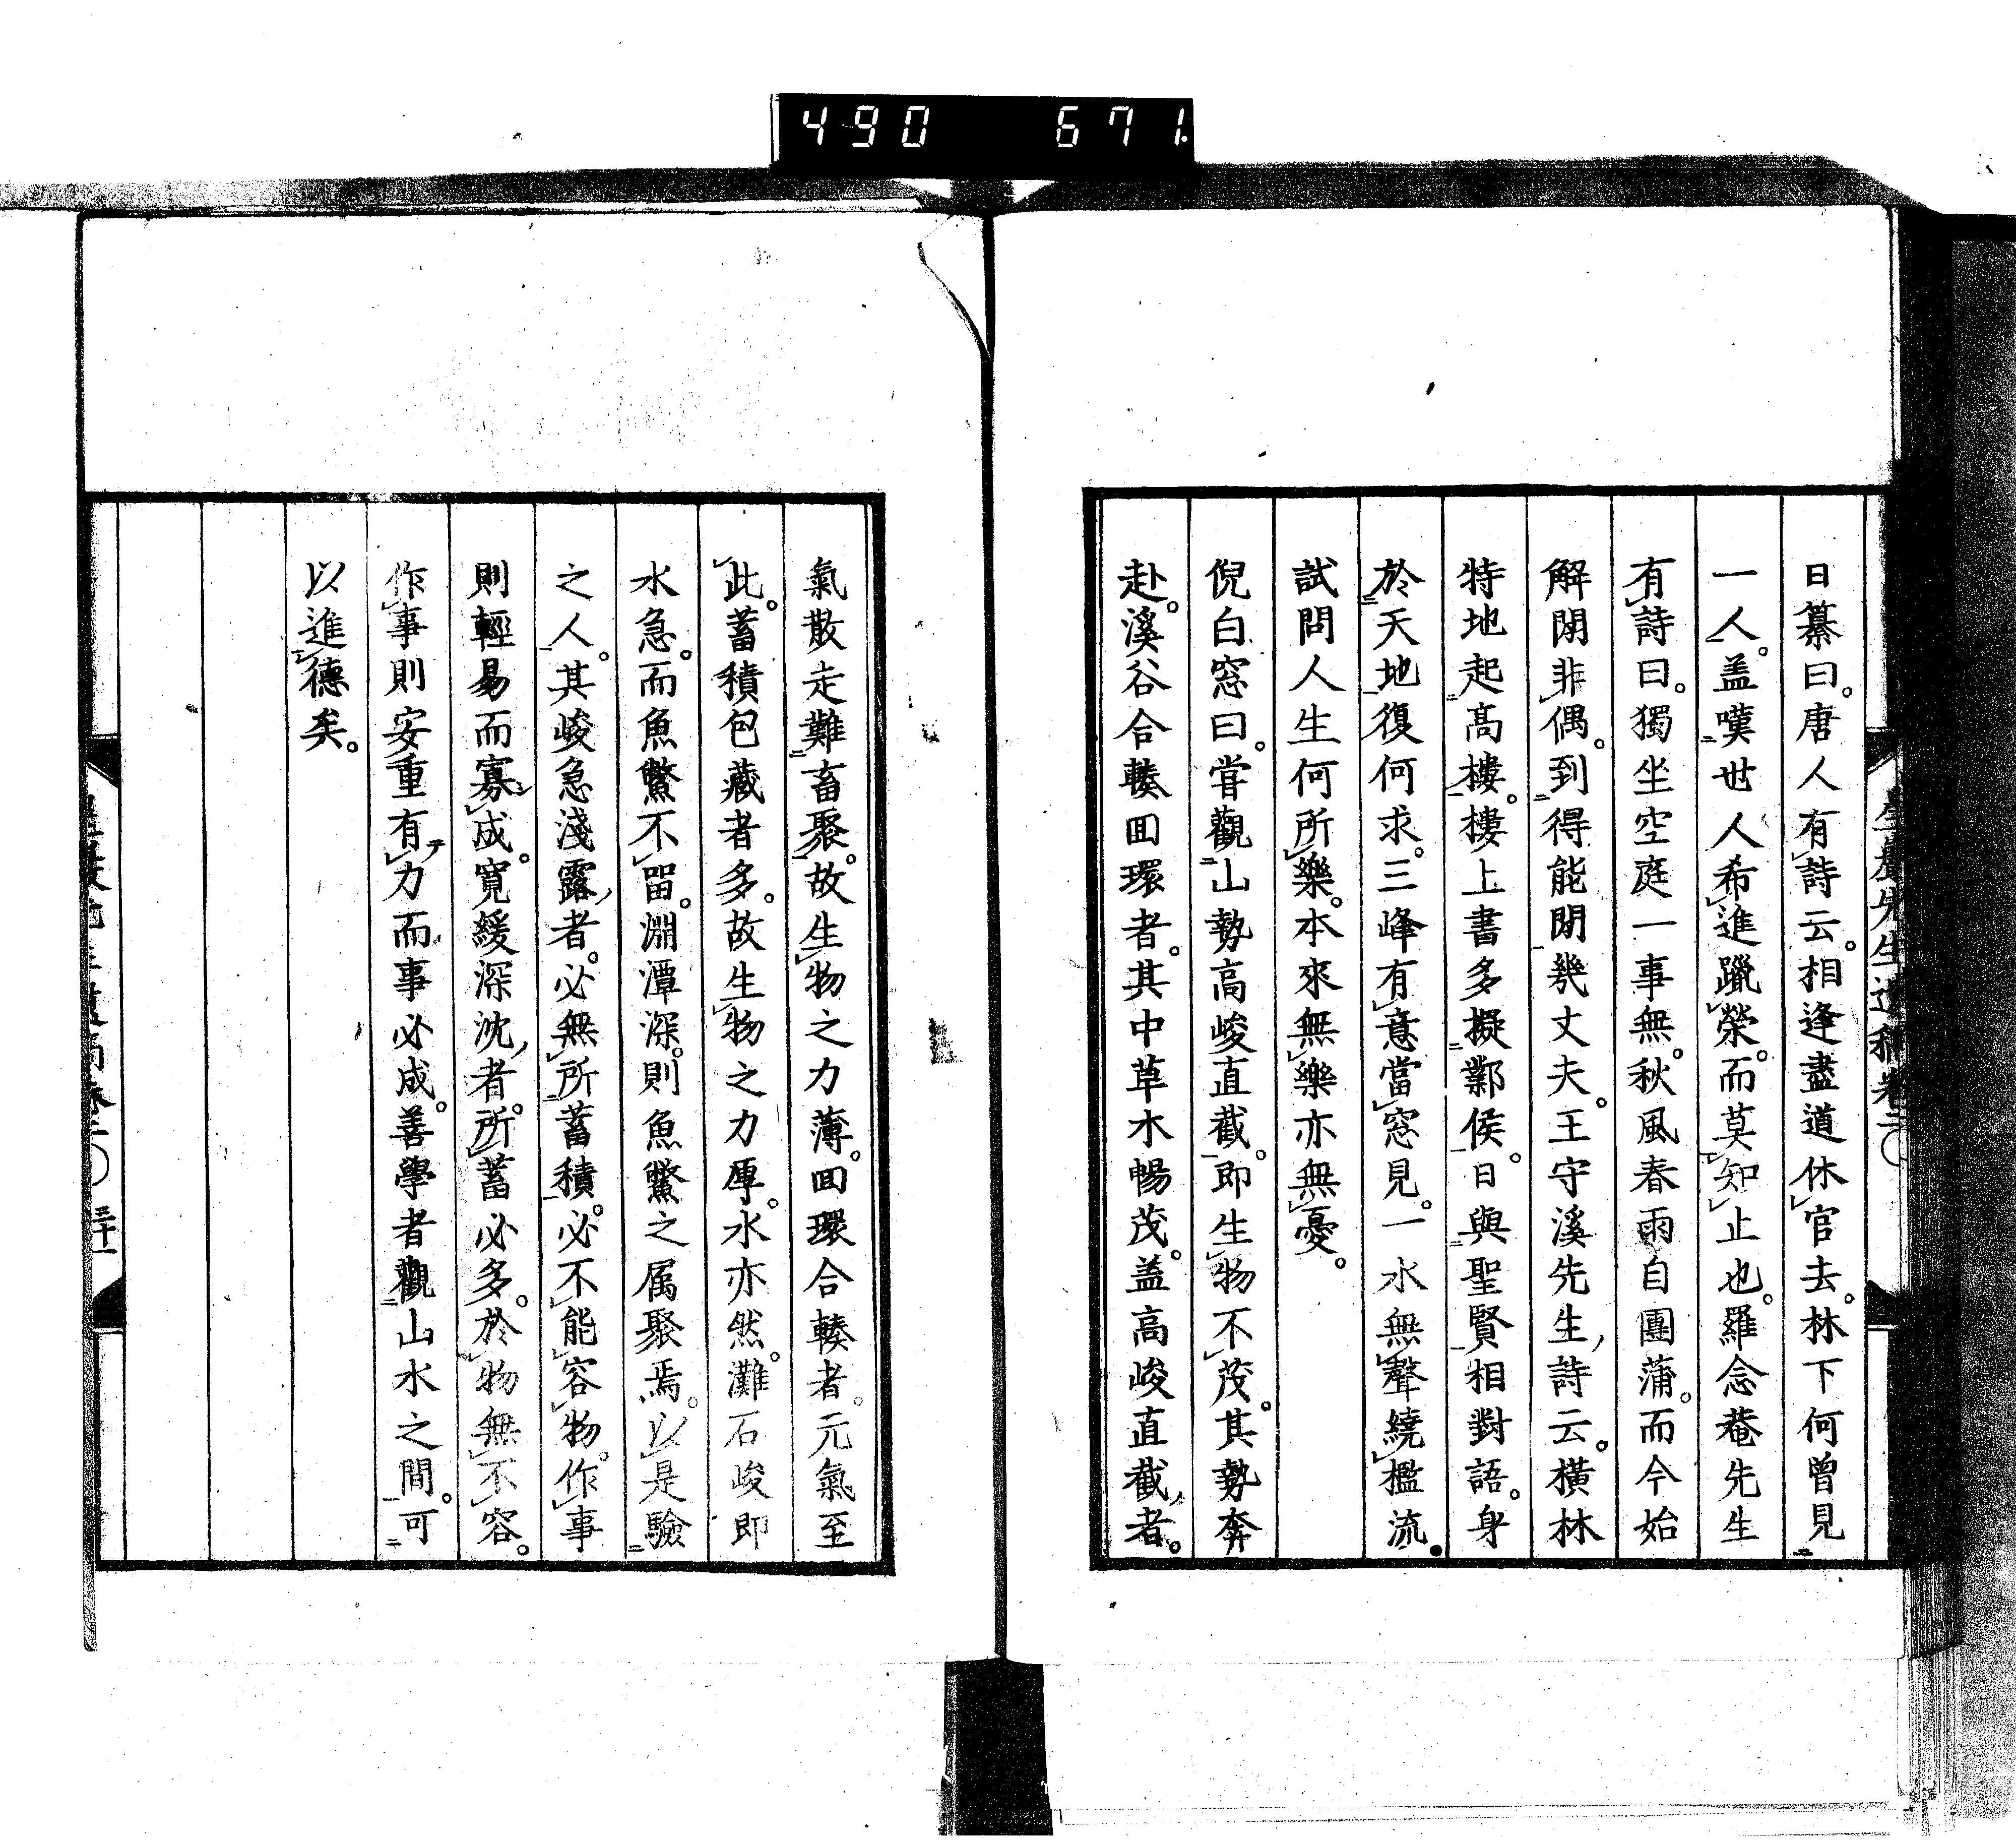 490 671
日纂曰。唐人有詩云。相逢盡道休官去。林下何曾見
一人。盖嘆世人希進躐榮。而莫知止也。羅念菴先生
有詩曰。獨坐空庭一事無。秋風春雨自團蒲。而今始
解閑非偶。到得能閑幾丈夫。王守溪先生詩云。橫林
特地起高樓。樓上書多擬鄴侯。日與聖賢相對語。身
於天地復何求。三峰有意當窓見。一水無聲繞檻流。
試問人生何所樂。本來無樂亦無憂。
倪白窓曰。甞觀山勢高峻直截。即生物不茂。其勢奔
赴。溪谷合輳囬環者。其中草木暢茂。盖高峻直截者。
氣散走難畜聚。故生物之力薄。囬環合輳者。元氣至
此。蓄積包藏者多。故生物之力厚。水亦然。灘石峻即
水急。而魚鱉不留。淵潭深。則魚鱉之属聚焉。以是驗
之人。其峻急淺露者。必無所蓄積。必不能容物。作事
則輕易而寡成。寬緩深沈者。所蓄必多。於物無不容。
作事則安重有力而事必成。善學者觀山水之間。可
以進德矣。
三十一